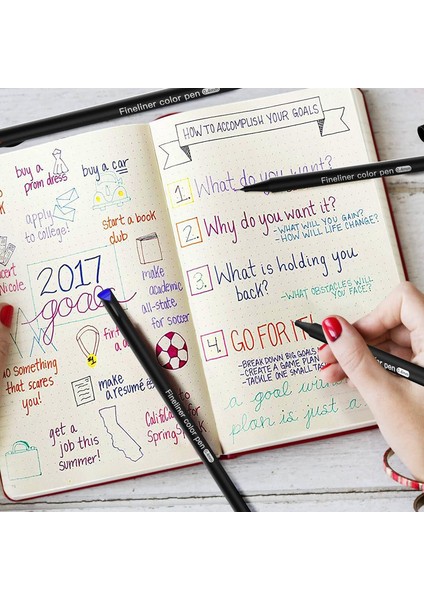 Fineliner color pen
buy a
prom dress
buy a car
apply
to college!
start a book
club
concert
Nicole
2017
goals
make
academic
all-state
for soccer
find
a
DO something
that scares
you!
make
a resumé
get a
job this
summer!
California
Spring
Fineliner color pen
HOW TO ACCOMPLISH YOUR GOALS
1. What do you want?
Fineliner color pen
2. Why do you want it?
-WHAT WILL YOU GAIN?
-HOW WILL LIFE CHANGE?
3. What is holding you
back?
-WHAT OBSTACLES WILL
YOU FACE?
4. GO FOR IT!
-BREAK DOWN BIG GOALS
-CREATE A GAME PLAN
-TACKLE ONE SMALL TASK
a goal
plan is just a
Fineliner color pen